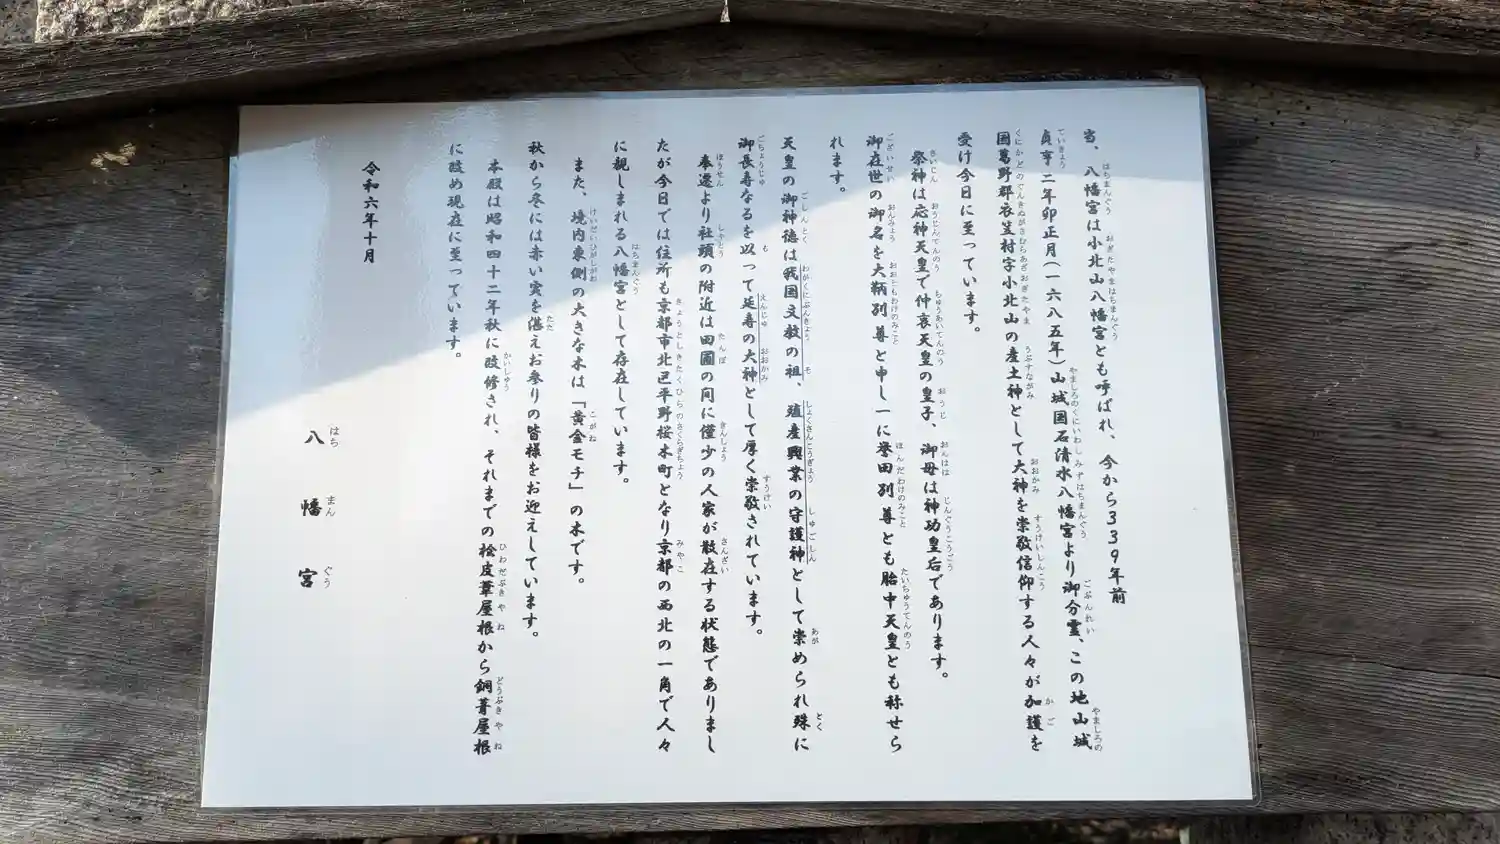 当、八幡宮は小北山八幡宮とも呼ばれ、今から339年前
貞享二年卯正月(一六八五年)山城国石清水八幡宮より御分霊、この地山城
国葛野郡衣笠村字小北山の産土神として大神を崇敬信仰する人々が加護を
受け今日に至っています。
祭神は応神天皇で仲哀天皇の皇子、御母は神功皇后であります。
御在世の御名を大鞆別尊と申し一に誉田別尊とも胎中天皇とも称せら
れます。
天皇の御神徳は我国文教の祖、殖産興業の守護神として崇められ殊に
御長寿なるを以って延寿の大神として厚く崇敬されています。
奉遷より社頭の附近は田圃の間に僅少の人家が散在する状態でありまし
たが今日では住所も京都市北区平野桜木町となり京都の西北の一角で人々
に親しまれる八幡宮として存在しています。
また、境内東側の大きな木は「黄金モチ」の木です。
秋から冬には赤い実を湛えお参りの皆様をお迎えしています。
本殿は昭和四十二年秋に改修され、それまでの桧皮葺屋根から銅葺屋根
に改め現在に至っています。
令和六年十月
八幡宮